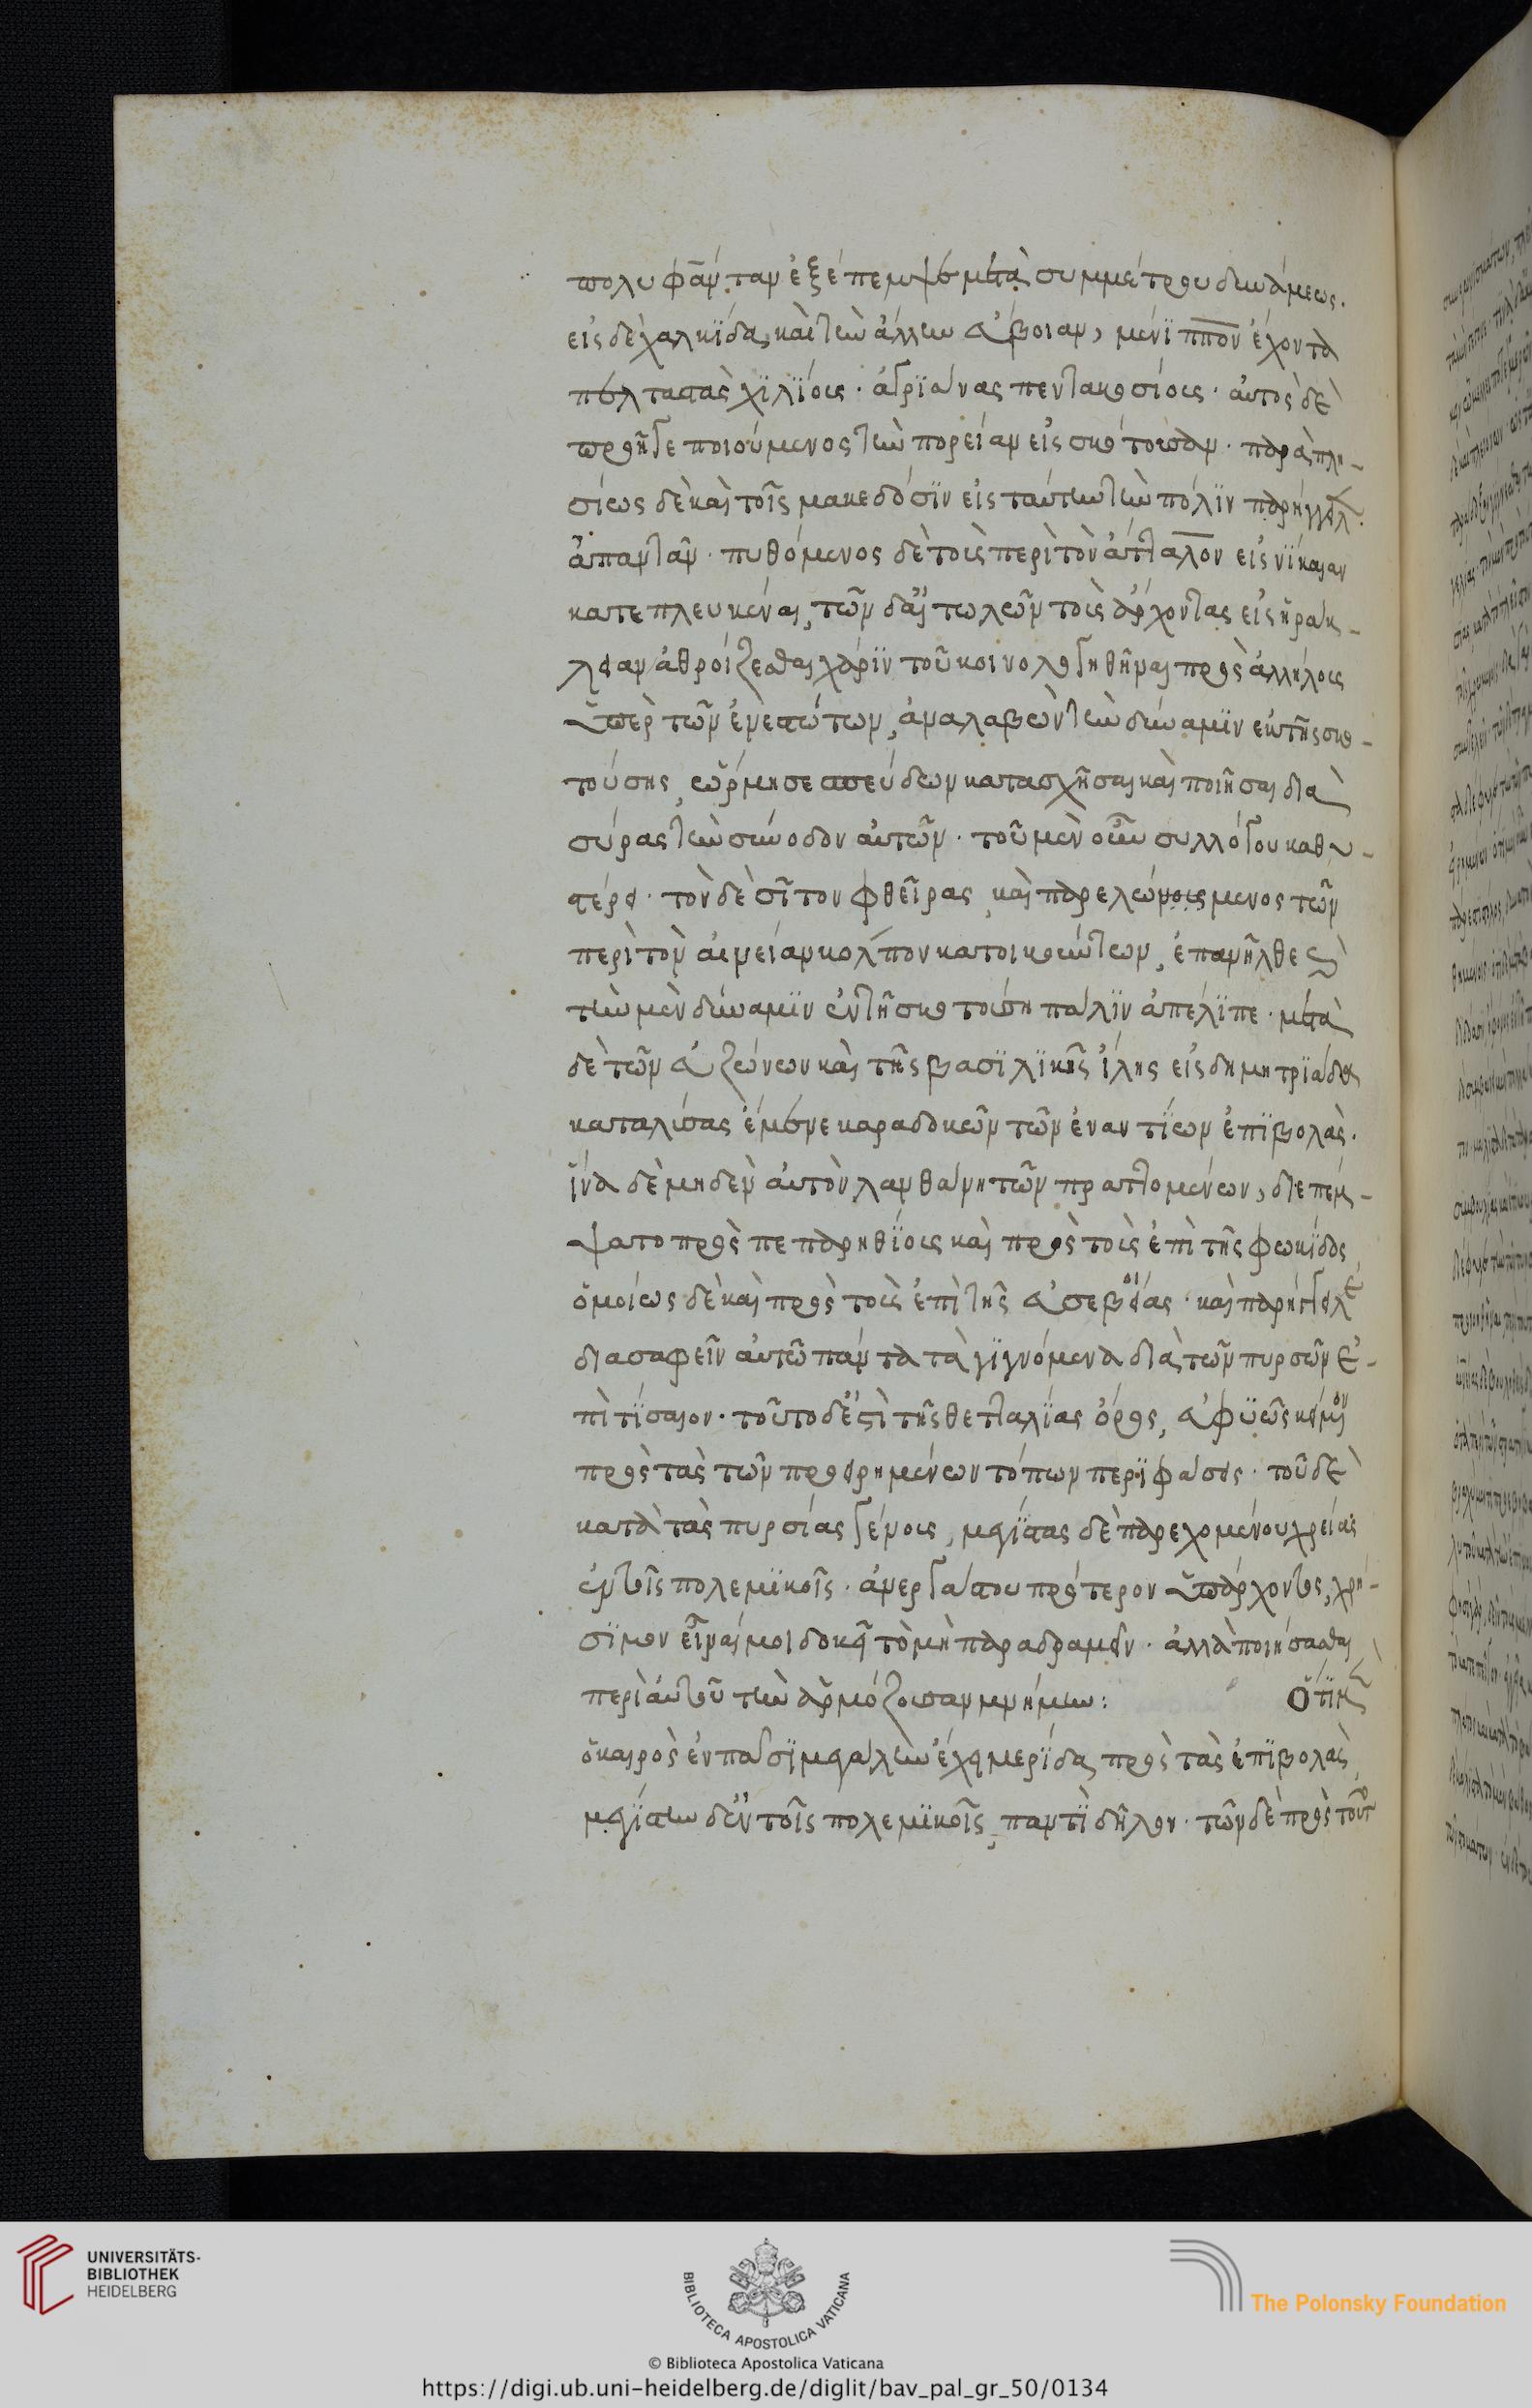 πολυφάνταν ἐξέπεμψε μετὰ συμμέτρου δυνάμεως.
εἰς δὲ χαλκΐδα, καὶ τὴν ἄλλην εὔβοιαν, μένϊππον ἔχοντα
πελταστὰς χϊλΐους · ἀγρϊᾶνας πεντακοσίους · αὐτὸς δὲ
προῆγε ποιούμενος τὴν πορείαν εἰς σκότουσαν · παραπλη-
σίως δὲ καὶ τοῖς μακεδόσϊν εἰς ταύτην τὴν πόλϊν παρήγγειλ.
ἀπαντᾶν · πυθόμενος δὲ τοὺς περὶ τὸν ἄτταλον εἰς νΐκαιαν
καταπεπλευκέναι, τῶν δ' αἰτωλῶν τοὺς ἄρχοντας εἰς ἡρακ-
λειαν ἀθροίζεσθαι χάρϊν τοῦ κοινολογηθῆναι πρὸς ἀλλήλους
ὑπὲρ τῶν ἐνεστώτων, ἀναλαβὼν τὴν δύναμϊν ἐκ τῆς σκο-
τούσης, ὥρμησε σπεύδων κατασχῆσαι καὶ ποιῆσαι δϊα
σύρας τὴν σύνοδον αὐτῶν · τοῦ μὲν οὖν συλλόγου καθυ-
στέρει · τὸν δὲ σῖτον φθείρας, καὶ παρελώμενος τῶν
περὶ τὸν αἰνείαν κόλπον κατοικούντων, ἐπανῆλθε ·
τὴν μὲν δύναμϊν ἐν τῇ σκοτούσῃ πάλϊν ἀπέλϊπε · μετὰ
δὲ τῶν εὐζώνων καὶ τῆς βασϊλϊκῆς ἴλης εἰς δημητρϊάδα
καταλύσας ἔμενε καραδοκῶν τῶν ἐναντΐων ἐπϊβολάς.
ἵνα δὲ μηδὲν αὐτὸν λανθάνῃ τῶν πραττομένων, διεπέμ-
ψατο πρὸς πεπαρηθΐους καὶ πρὸς τοὺς ἐπὶ τῆς φωκΐδος
ὁμοίως δὲ καὶ πρὸς τοὺς ἐπὶ τῆς εὐσεβοίας · καὶ παρήγγειλε
διασαφεῖν αὐτῷ πάντα τὰ γϊγνόμενα διὰ τῶν πυρσῶν ἐ-
πὶ τΐσαιον · τοῦτο δ' ἔστὶ τῆς θετταλΐας ὄρος, εὐφϋῶς κείμενον
πρὸς τὰς τῶν προειρημένων τόπων περϊφάσεις · τοῦ δὲ
κατὰ τὰς πυρσίας γένους, μεγΐστας δὲ παρεχομένου χρείας
ἐν τοῖς πολεμϊκοῖς · ἀνεργάστου πρότερον ὑπάρχοντος, χρή-
σϊμον εἶναί μοι δοκεῖ τὸ μὴ παραδραμεῖν · ἀλλὰ ποιήσασθαι
περὶ αὐτοῦ τὴν ἁρμόζουσαν μνήμην: Ὅτϊ μὲν
ὁ καιρὸς ἐν πᾶσϊ μεγάλην ἔχει μερΐδα πρὸς τὰς ἐπϊβολὰς,
μεγΐστην δ' ἐν τοῖς πολεμϊκοῖς, παντῒ δῆλον · τῶν δὲ πρὸς τοῦτο
UNIVERSITÄTS-
BIBLIOTHEK
HEIDELBERG
BIBLIOTECA APOSTOLICA VATICANA
The Polonsky Foundation
© Biblioteca Apostolica Vaticana
https://digi.ub.uni-heidelberg.de/diglit/bav_pal_gr_50/0134